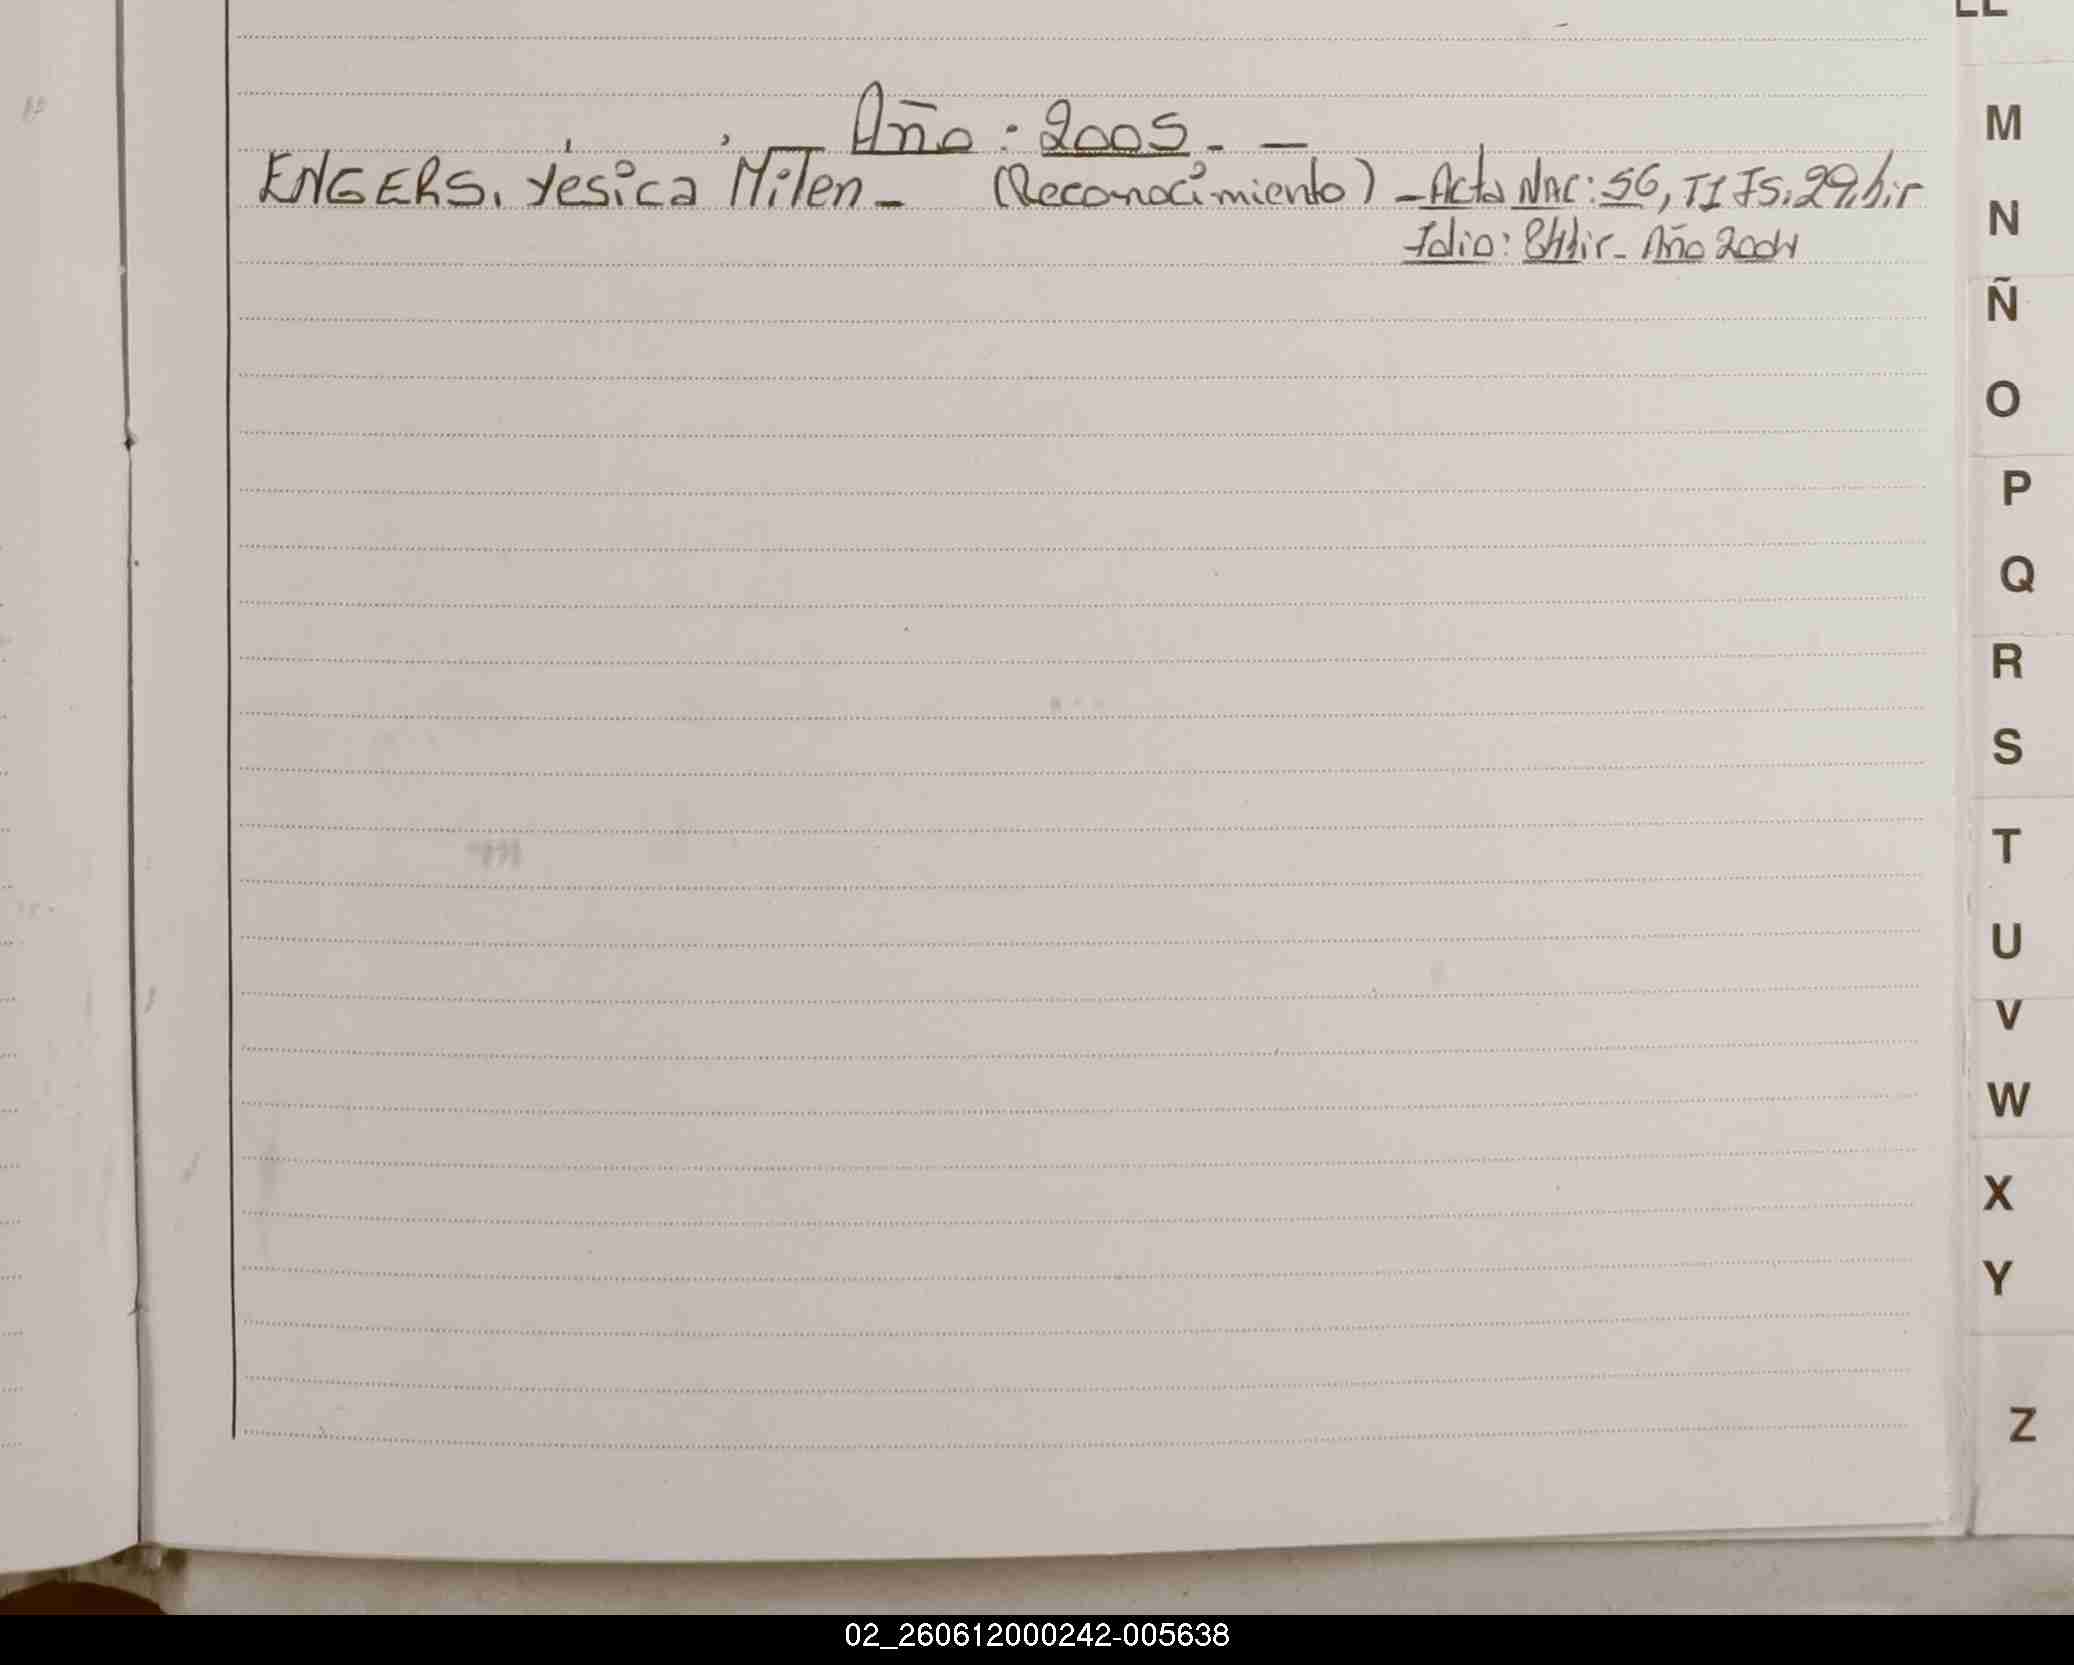 LL
Año : 2005. –
ENGERS, Yésica Milen – (Reconocimiento) – Acta Nac: 56, TI FS. 29,
Folio: Año 2004
M
N
Ñ
O
P
Q
R
S
T
U
V
W
X
Y
Z
02_260612000242-005638